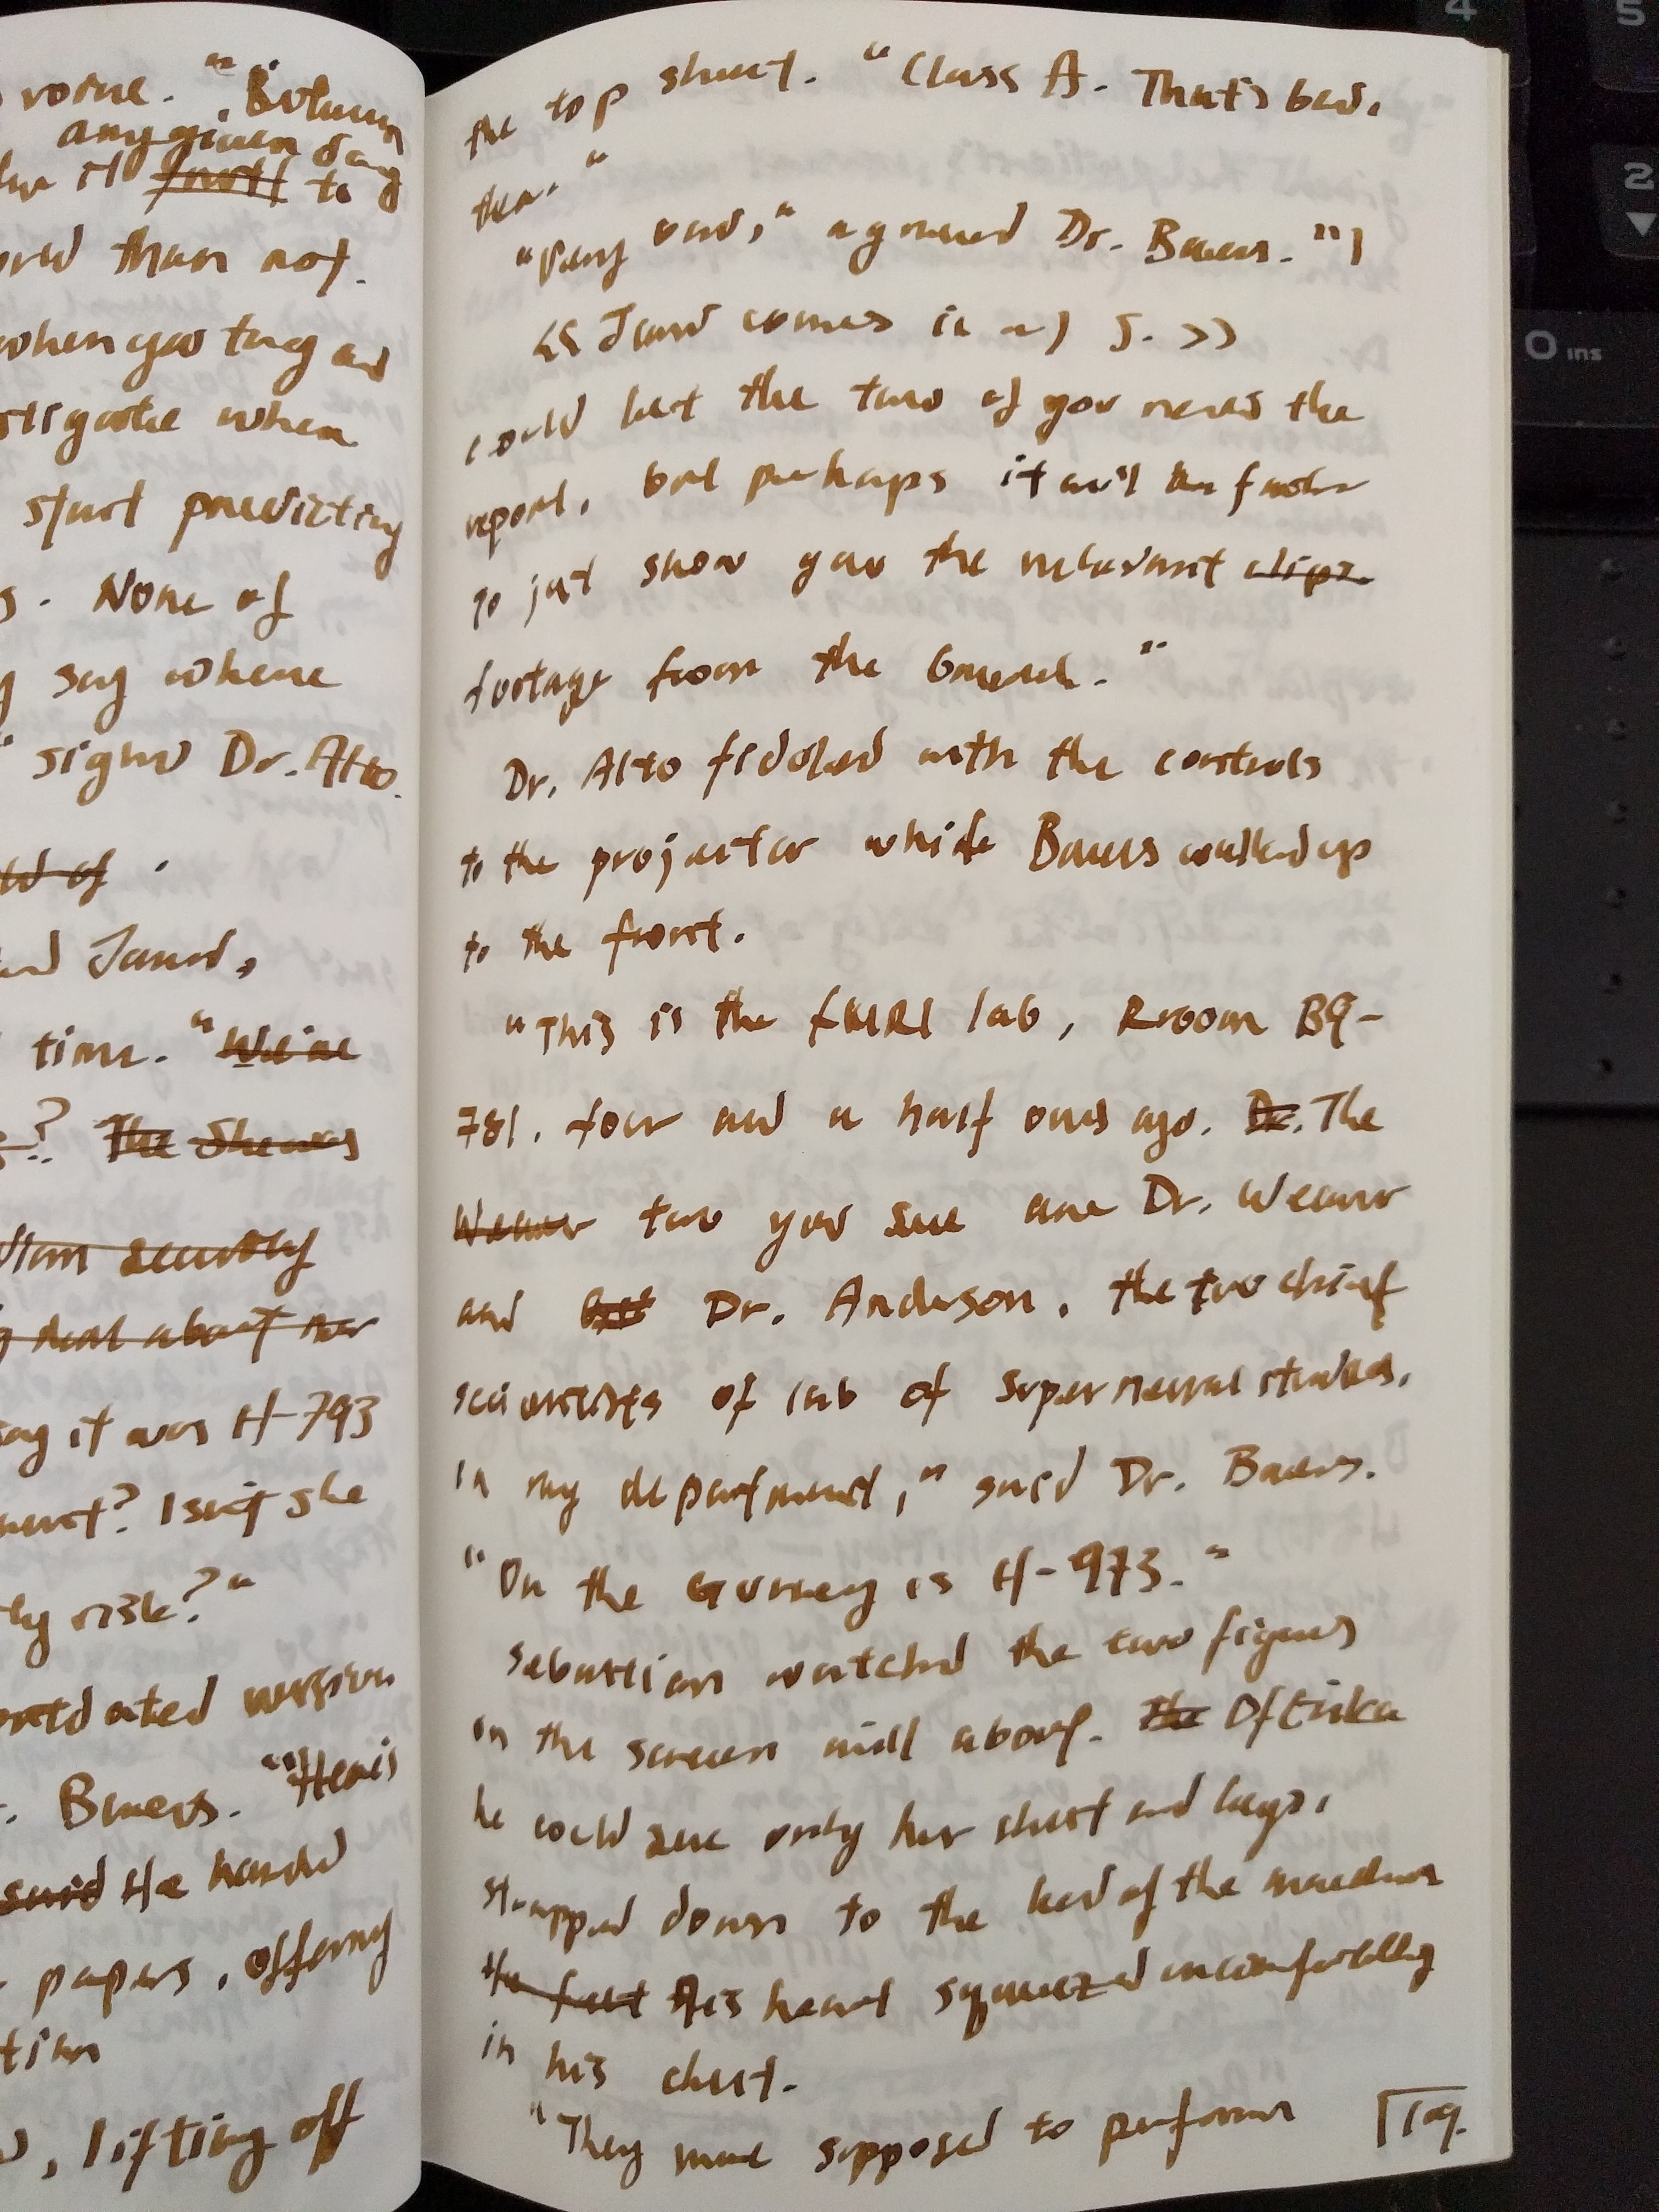 voice. "Between
any given day
it to
than not.
when you tug and
when
start predicting
s. None of
say where
signed Dr. Alto.
of .
Jared,
time. "We're
? The Shears
security
deal about her
say it was H-793
ment? Isn't she
risk?"
outdated version
. Bauers. "He is
said He handed
papers, offering
, lifting off
the top sheet. "Class A. That's bad,
then."
"Very bad," agreed Dr. Bauers. "I
<< Jared comes in at 5. >>
could let the two of you read the
report, but perhaps it will be faster
to just show you the relevant clips
footage from the breach."
Dr. Alto fiddled with the controls
to the projector while Bauers walked up
to the front.
"This is the fMRI lab, Room B9-
781, four and a half ours ago. Dr. The
Weaver two you see are Dr. Weaver
and Dr. Anderson, the two chief
scientists of lab of superneural studies,
in my department," said Dr. Bauers.
"On the Gurney is H-973."
Sebastian watched the two figures
on the screen mill about. The Of Erika
he could see only her chest and legs,
strapped down to the bed of the machine
the feet His heart squeezed uncomfortably
in his chest.
"They were supposed to perform